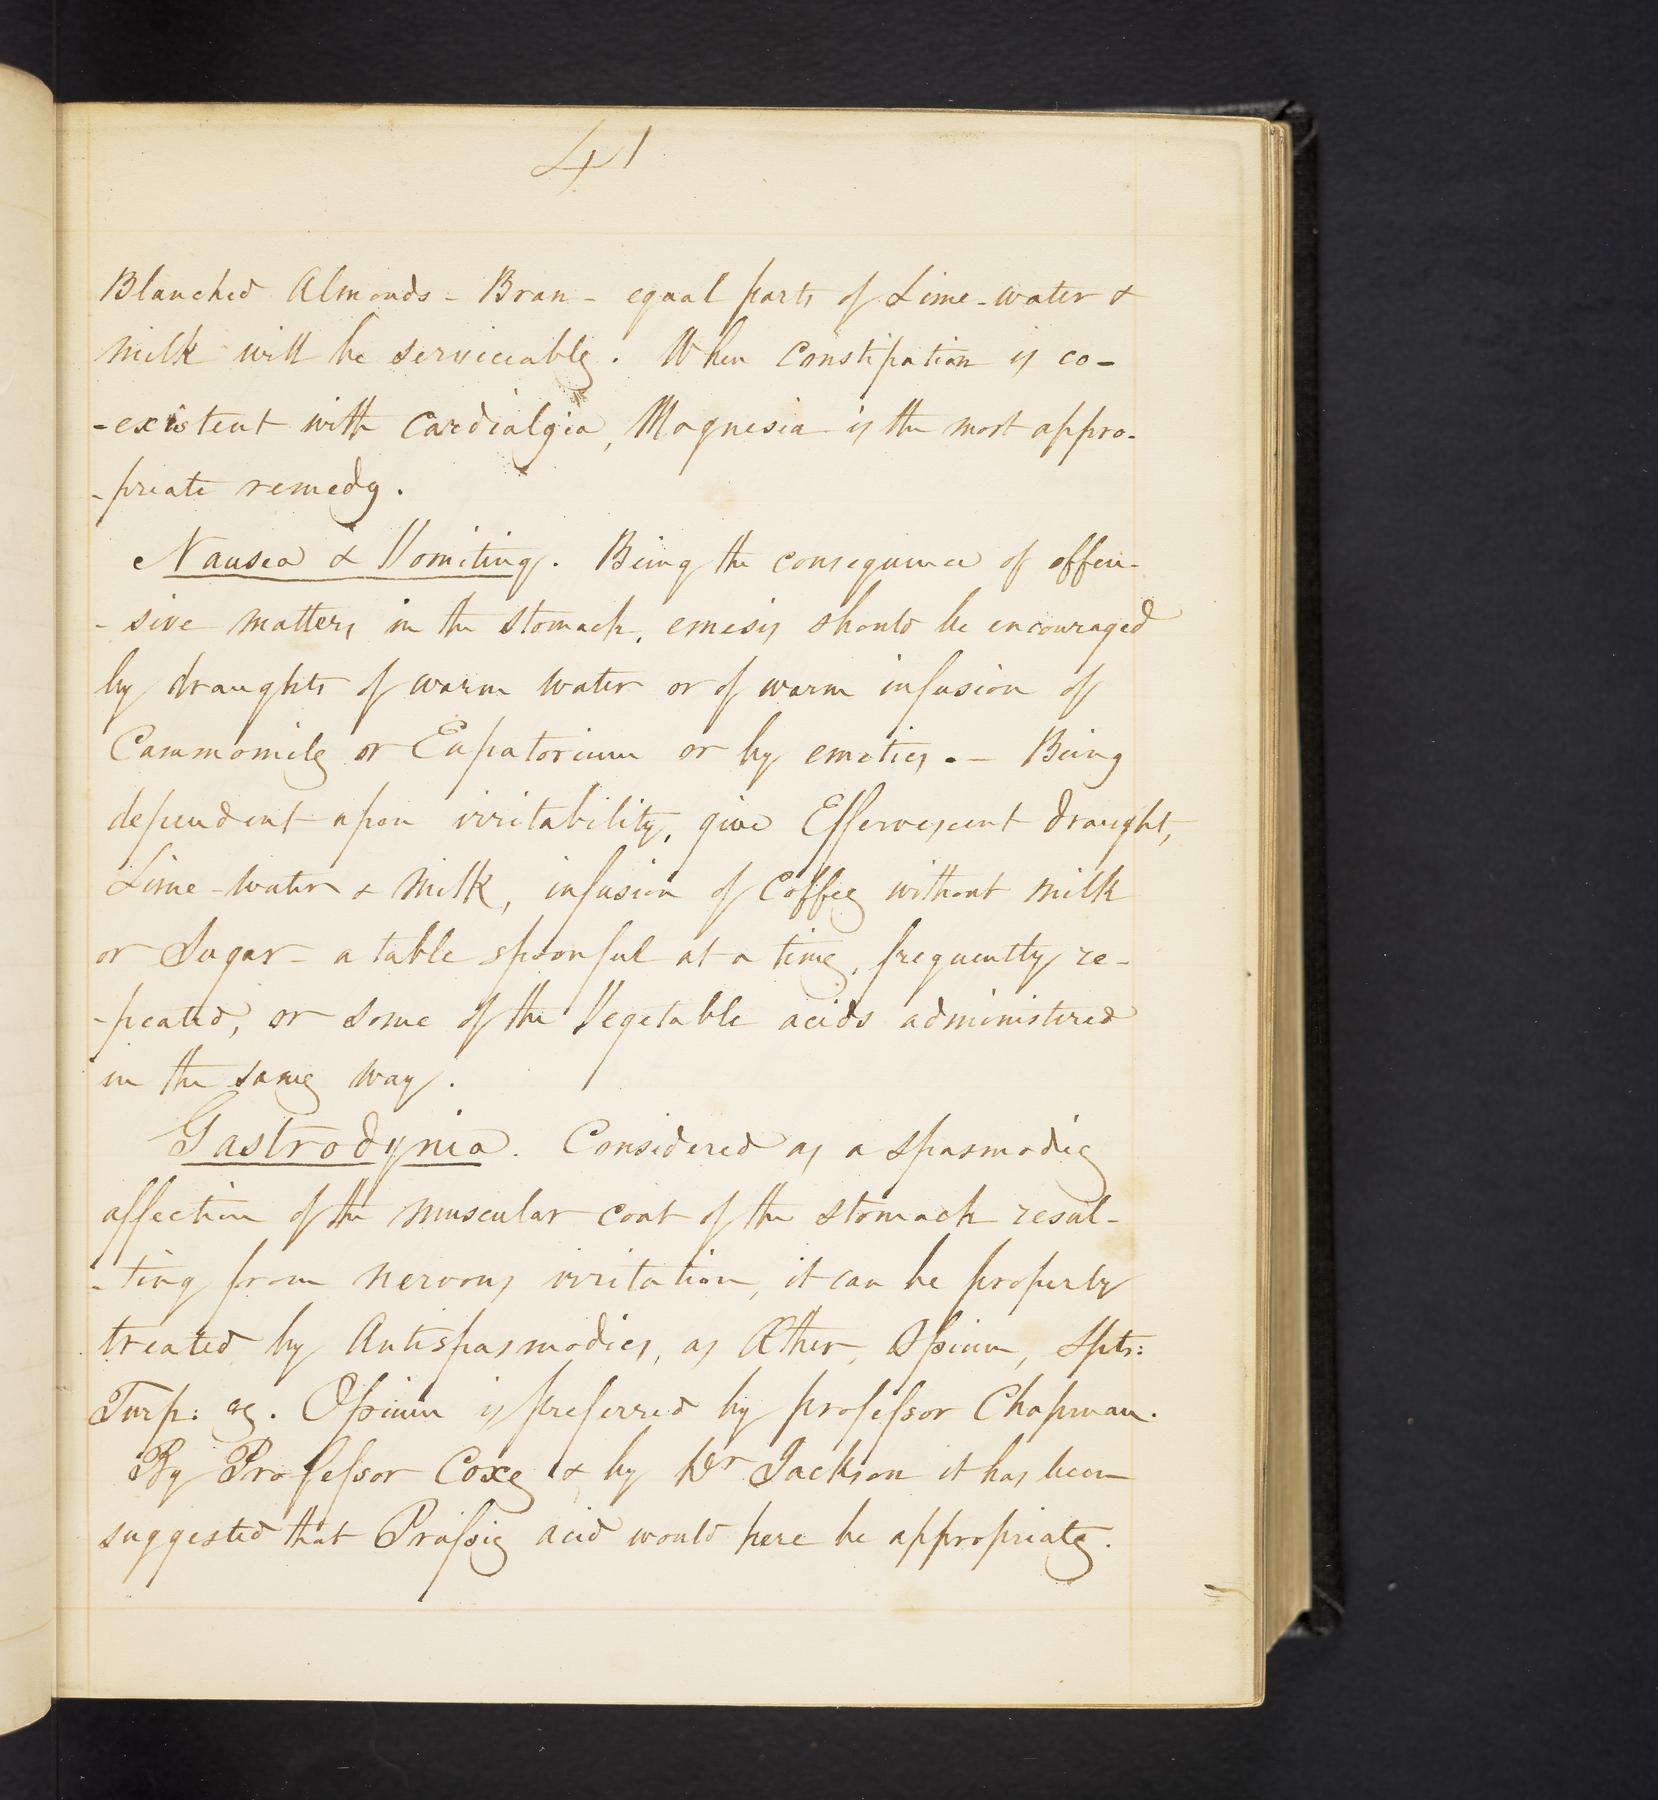 41
Blanched Almonds - Bran - equal parts of Lime-water &
milk will be serviceable. When constipation is co-
-existent with Cardialgia, Magnesia is the most appro-
-priate remedy.
Nausea & Vomiting. Being the consequence of offen-
-sive matters in the stomach, emesis should be encouraged
by draughts of warm water or of warm infusion of
Cammomile or Eupatorium or by emetics. - Being
dependent upon irritability, give Effervescent draughts,
Lime-water & Milk, infusion of Coffee without milk
or Sugar - a table spoonful at a time, frequently re-
-peated, or some of the Vegetable acids administered
in the same way.
Gastrodynia. Considered as a spasmodic
affection of the muscular coat of the stomach resul-
-ting from nervous irritation, it can be properly
treated by Antispasmodics, as Æther, Opium, Spts:
Turp: &c. Opium is preferred by professor Chapman.
By Professor Coxe & by Dr Jackson it has been
suggested that Prussic acid would here be appropriate.